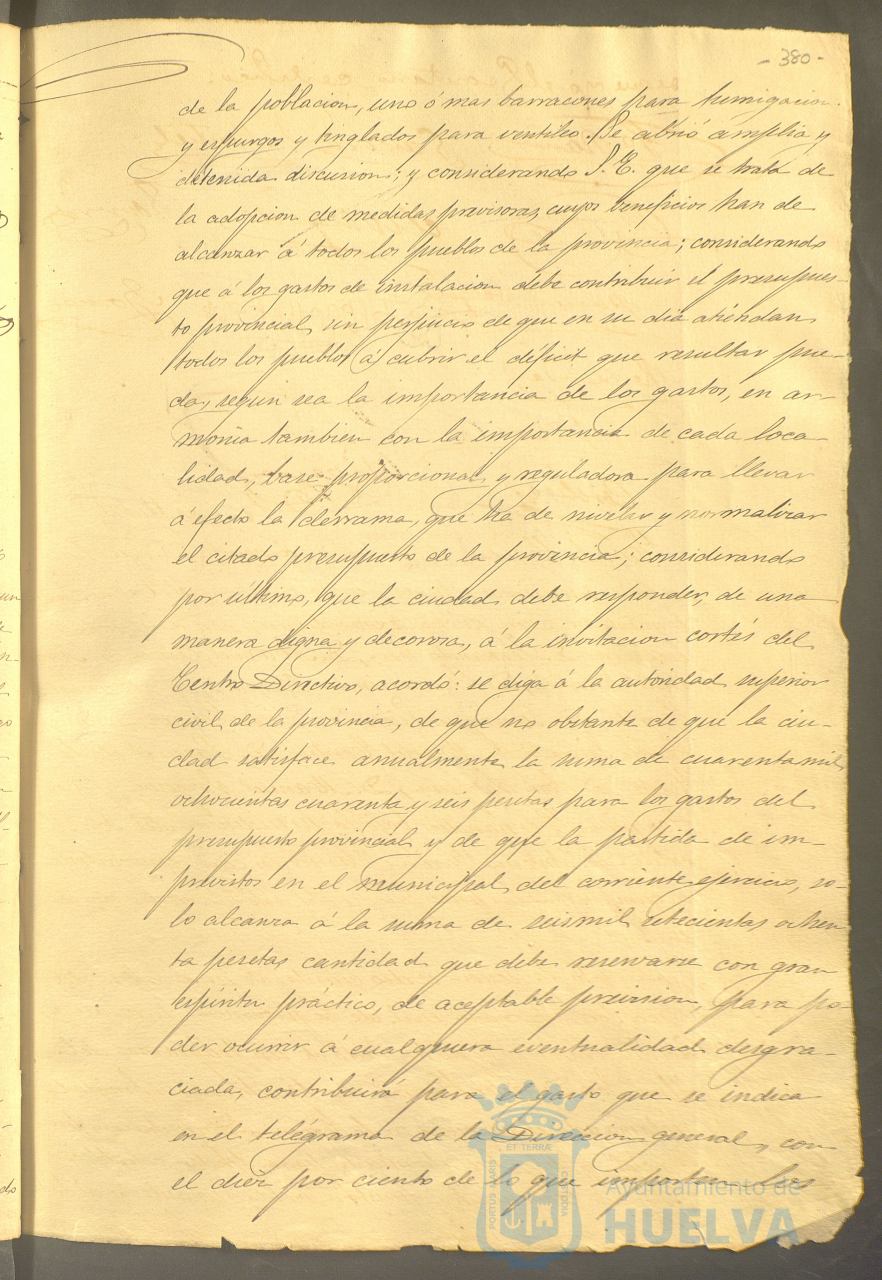 - 380 -
de la poblacion, uno ó mas barracones para fumigacion
y espurgos y tinglados para ventileo. Se abrió amplia y
detenida discusion; y considerando S. E. que se trata de
la adopcion de medidas previsoras, cuyos beneficios han de
alcanzar á todos los pueblos de la provincia; considerando
que á los gastos de instalacion debe contribuir el presupues-
to provincial, sin perjuicio de que en su dia atiendan
todos los pueblos á cubrir el déficit que resultar pue-
da, segun sea la importancia de los gastos, en ar-
monia tambien con la importancia de cada loca-
lidad, base proporcional y reguladora para llevar
á efecto la derrama, que ha de nivelar y normalizar
el citado presupuesto de la provincia; considerando
por último, que la ciudad debe responder, de una
manera digna y decorosa, á la invitacion cortés del
Centro Directivo, acordó: se diga á la autoridad superior
civil de la provincia, de que no obstante de que la ciu-
dad satisface anualmente la suma de cuarenta mil
ochocientas cuarenta y seis pesetas para los gastos del
presupuesto provincial y de que la partida de im-
previstos en el municipal del corriente ejercicio, so-
lo alcanza á la suma de seis mil setecientas ochen
ta pesetas cantidad que debe reservarse con gran
espíritu práctico, de aceptable prevision, para po-
der ocurrir á cualquiera eventualidad desgra-
ciada, contribuirá para el gasto que se indica
en el telégrama de la Direccion general, con
el diez por ciento de lo que importen los
PORTUS MARIS
ET TERRÆ
CUSTODIA
Ayuntamiento de
HUELVA